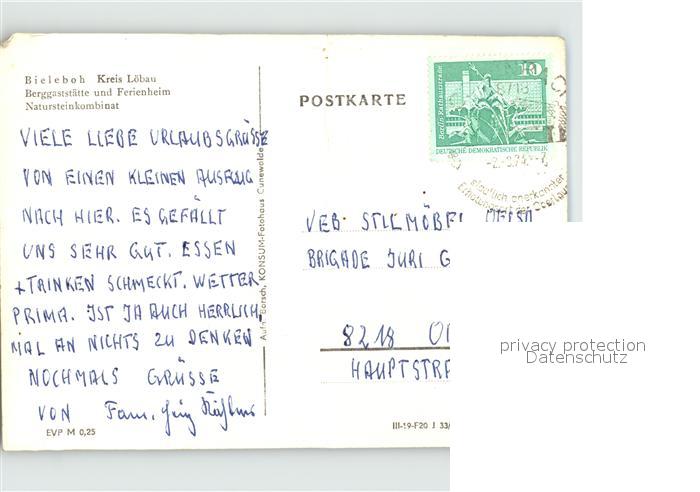 Bieleboh Kreis Löbau
Berggaststätte und Ferienheim
Natursteinkombinat
POSTKARTE
10
Berlin-Rathausstraße
DEUTSCHE DEMOKRATISCHE REPUBLIK
staatlich anerkannter
VIELE LIEBE URLAUBSGRÜSSE
VON EINEN KLEINEN AUSFLUG
NACH HIER. ES GEFÄLLT
UNS SEHR GUT. ESSEN
+ TRINKEN SCHMECKT. WETTER
PRIMA. IST JA AUCH HERRLICH,
MAL AN NICHTS ZU DENKEN
NOCHMALS GRÜSSE
VON Fam.
EVP M 0,25
Aufn. Borsch, KONSUM-Fotohaus Cunewalde
VEB STILMÖBEL
BRIGADE JURI G
8218
HAUPTSTR
III-19-F20 J 33/
privacy protection
Datenschutz